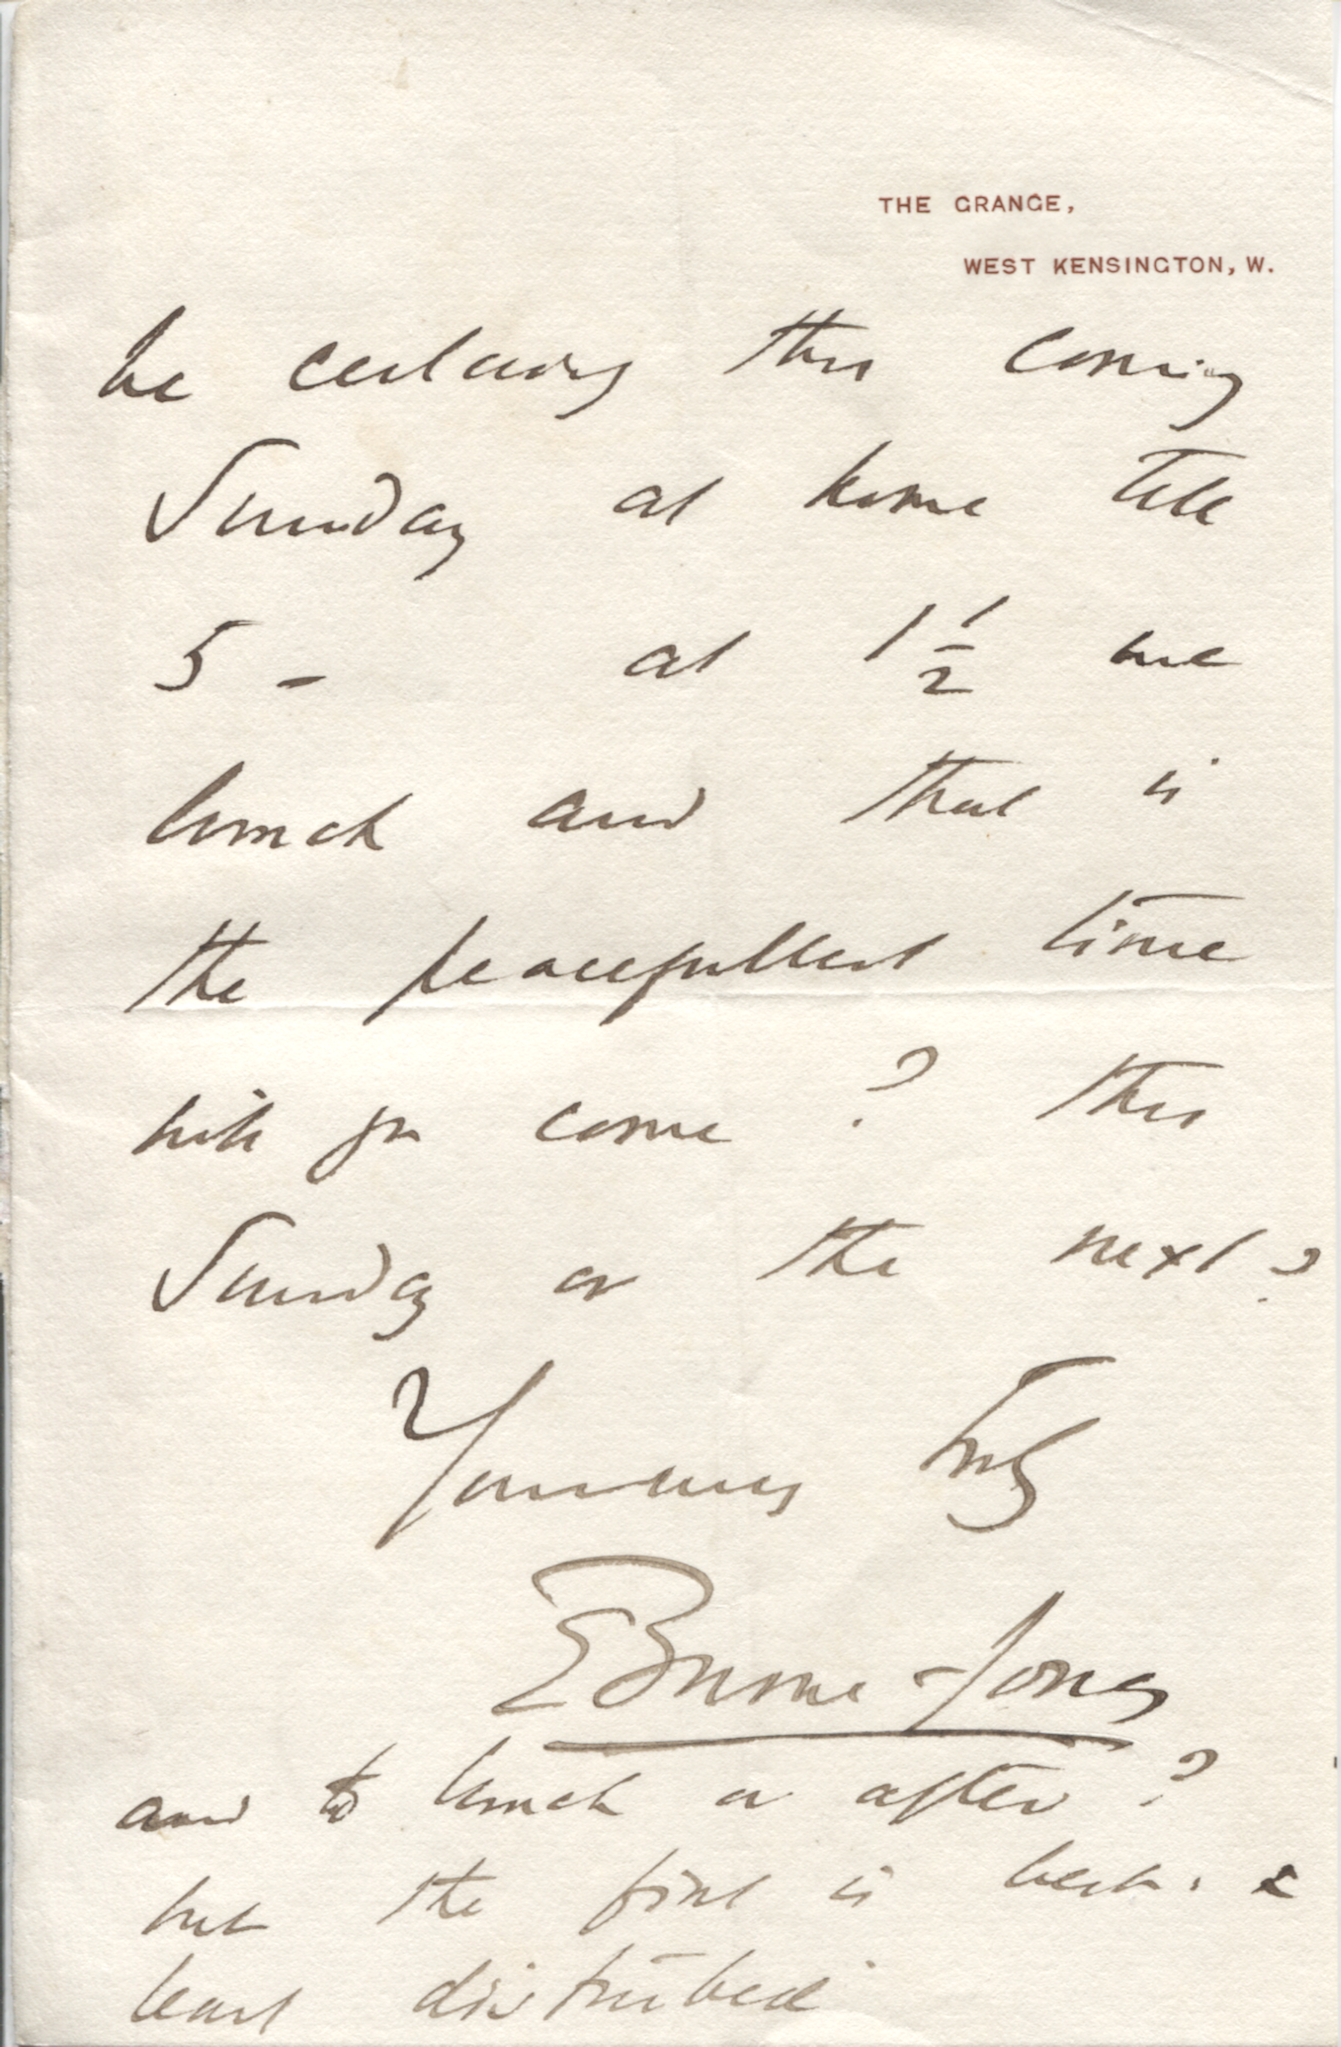 THE GRANGE,
WEST KENSINGTON, W.
be certainly this coming
Sunday at home till
5 - at 1 1/2 we
lunch and that is
the peacefullest time
will you come? this
Sunday or the next?
Yours very truly
E Burne-Jones
and to lunch or after?
but the first is best. &
least disturbed